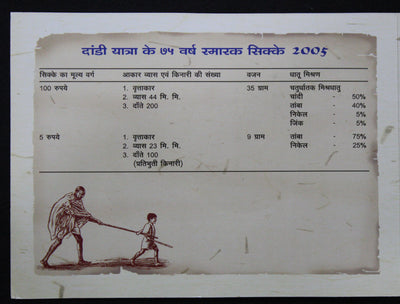 दांडी यात्रा के ७५ वर्ष स्मारक सिक्के 2005
सिक्के का मूल्य वर्ग आकार व्यास एवं किनारी की संख्या वजन धातु मिश्रण
100 रुपये 1. वृत्ताकार 35 ग्राम चतुर्धातक मिश्रधातु
2. व्यास 44 मि. मि. चांदी - 50%
3. दाँते 200 तांबा - 40%
निकेल - 5%
जिंक - 5%
5 रुपये 1. वृत्ताकार 9 ग्राम तांबा - 75%
2. व्यास 23 मि. मि. निकेल - 25%
3. दाँते 100
(प्रतिभुती किनारी)